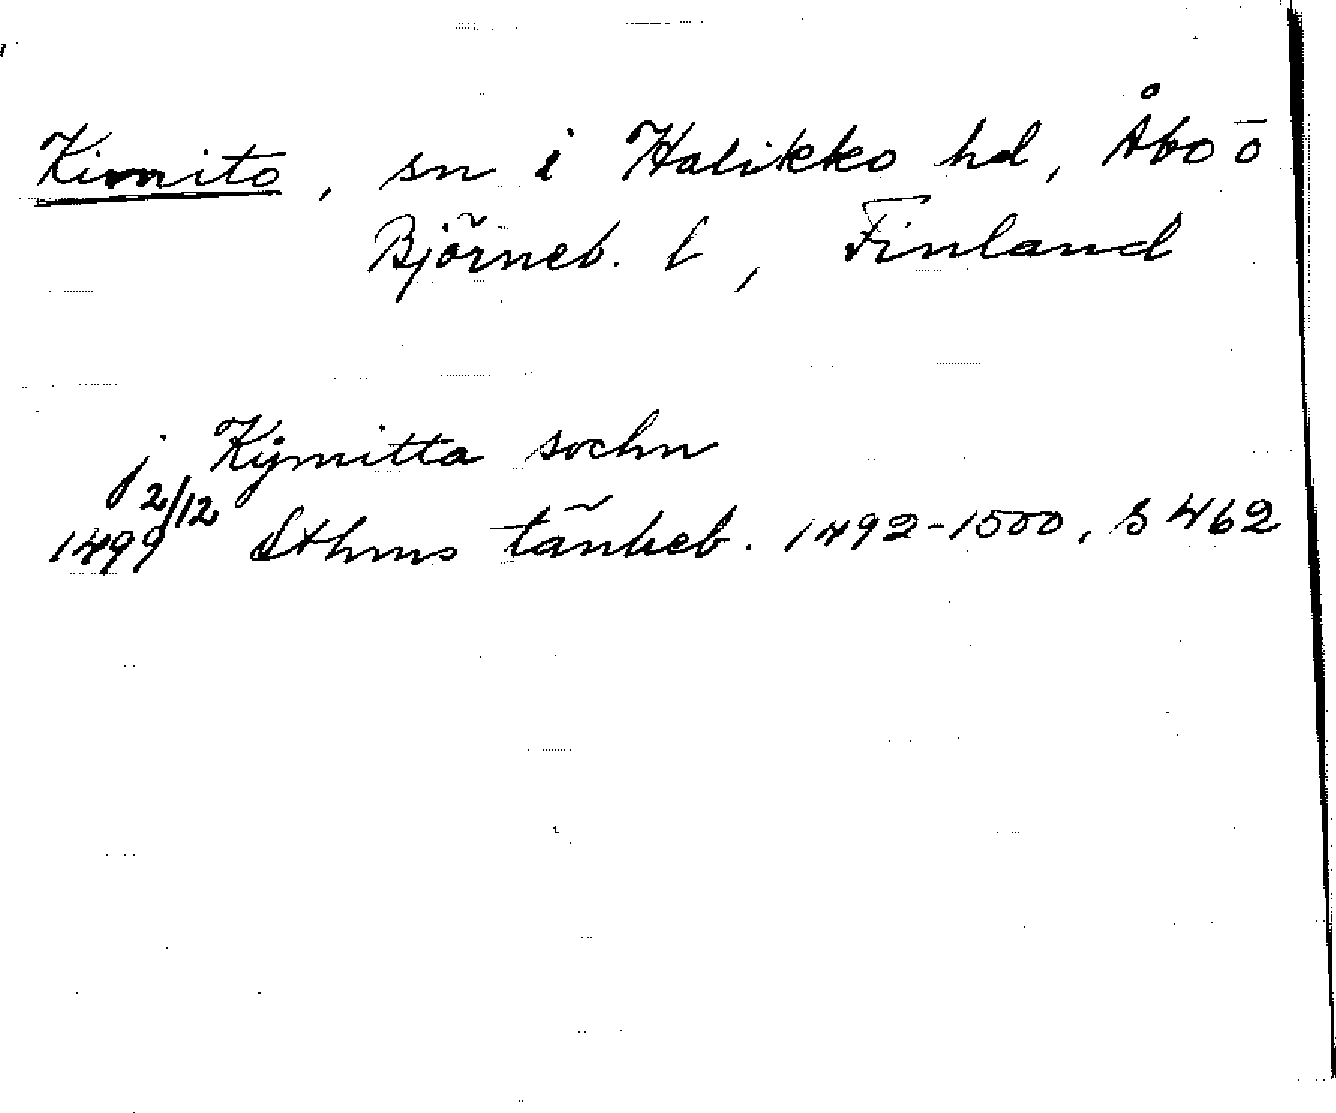 Kimito, sn i Halikko hd, Åbo o
Björneb. l, Finland
j Kijmitta sochn
2/12
1499 Sthms tänkeb. 1492-1500, s 462